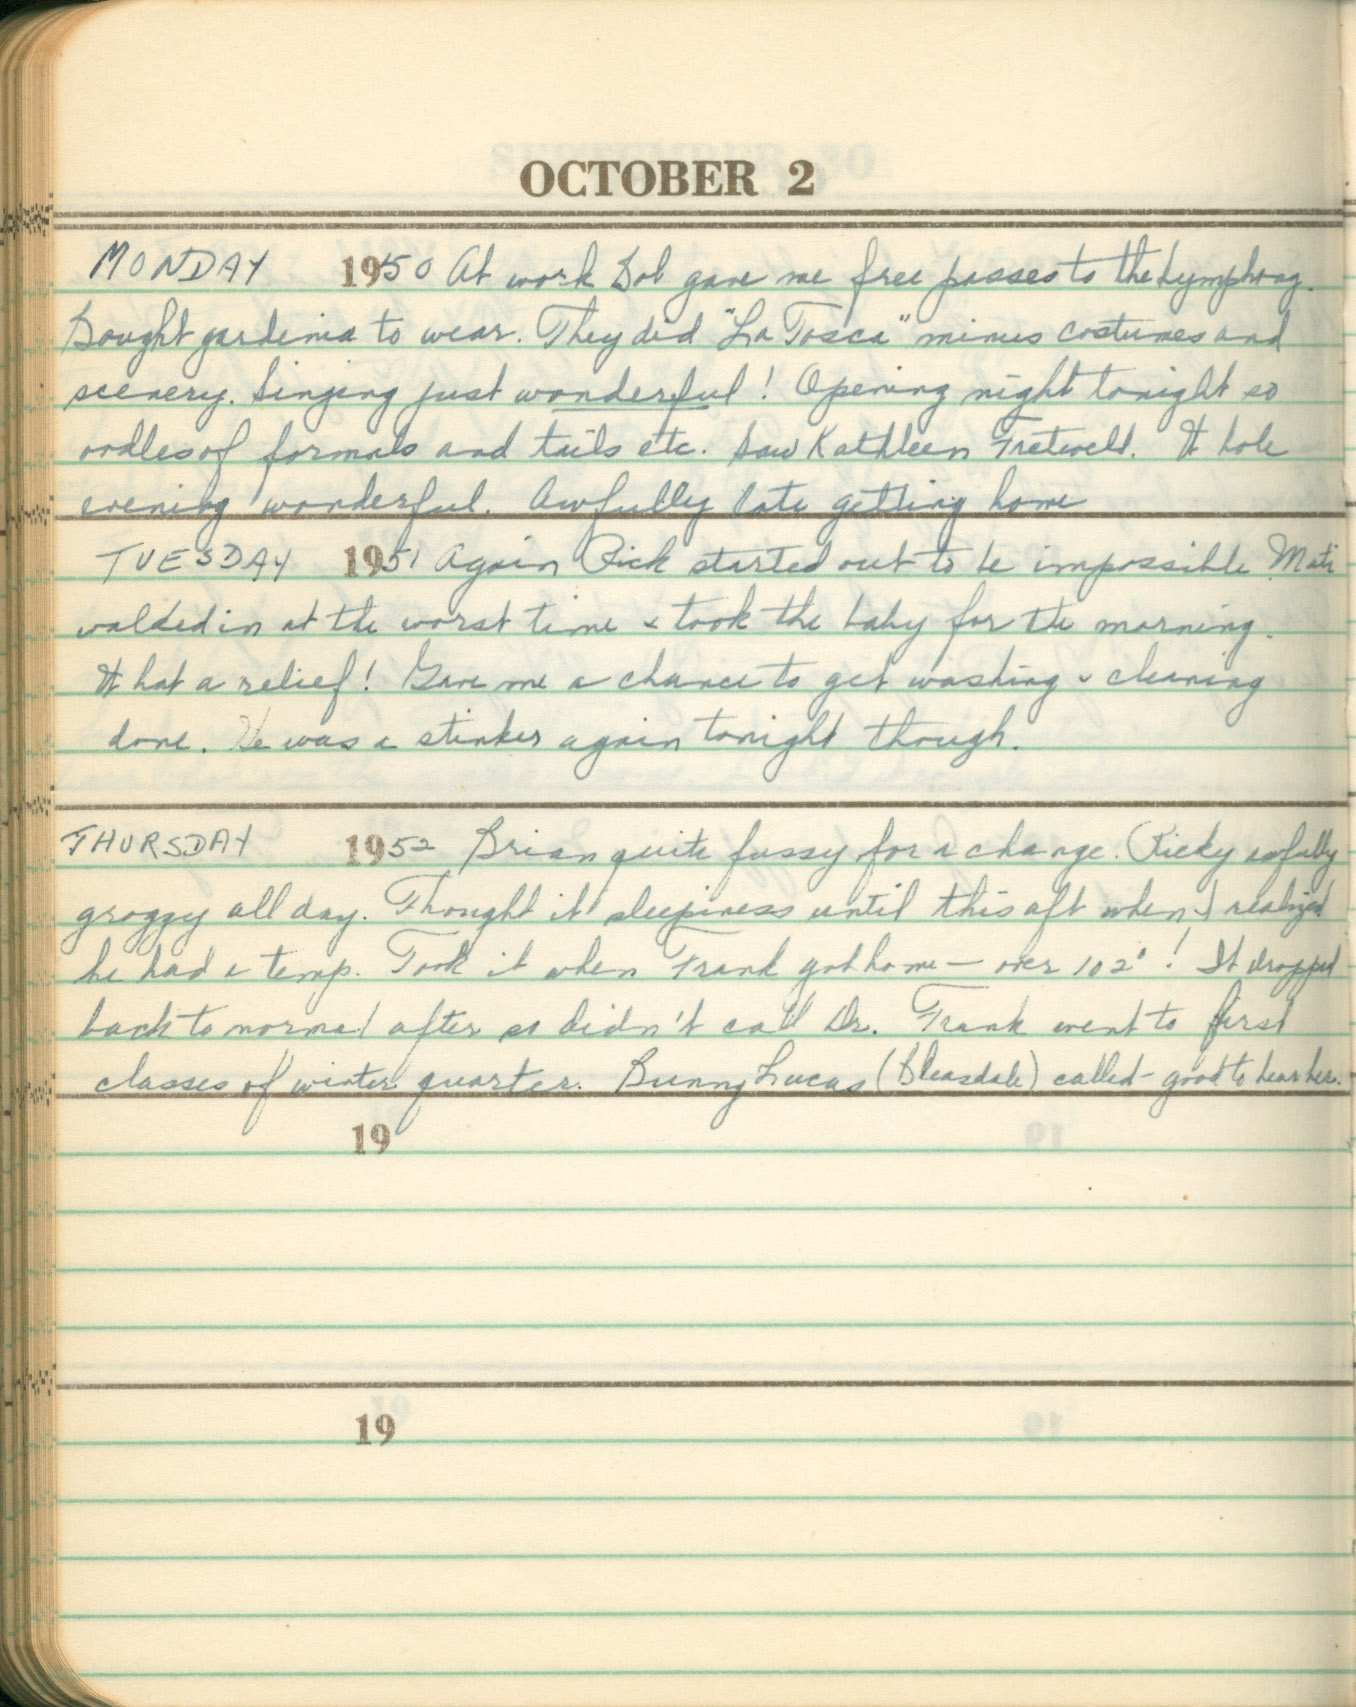 OCTOBER 2
MONDAY 1950 At work Bob gave me free passes to the Symphony.
Bought gardenia to wear. They did "La Tosca" minus costumes and
scenery. Singing just wonderful! Opening night tonight so
oodles of formals and tails etc. Saw Kathleen Whole
evening wonderful. Awfully late getting home
TUESDAY 1951 Again Rick started out to be impossible.
in at the worst time & took the baby for the morning.
What a relief! Gave me a chance to get washing & cleaning
done. He was a stinker again tonight though.
THURSDAY 1952 Brian quite fussy for a change. Ricky awfully
groggy all day. Thought it sleepiness until this aft when I realized
he had a temp. Took it when Frank got home — over 102°! It dropped
back to normal after so didn't call Dr. Frank went to first
classes of winter quarter. Bunny Lucas (Bleasdale) called - good to hear her.
19
19